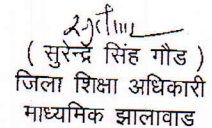 ( सुरेन्द्र सिंह गौड )
जिला शिक्षा अधिकारी
माध्यमिक झालावाड